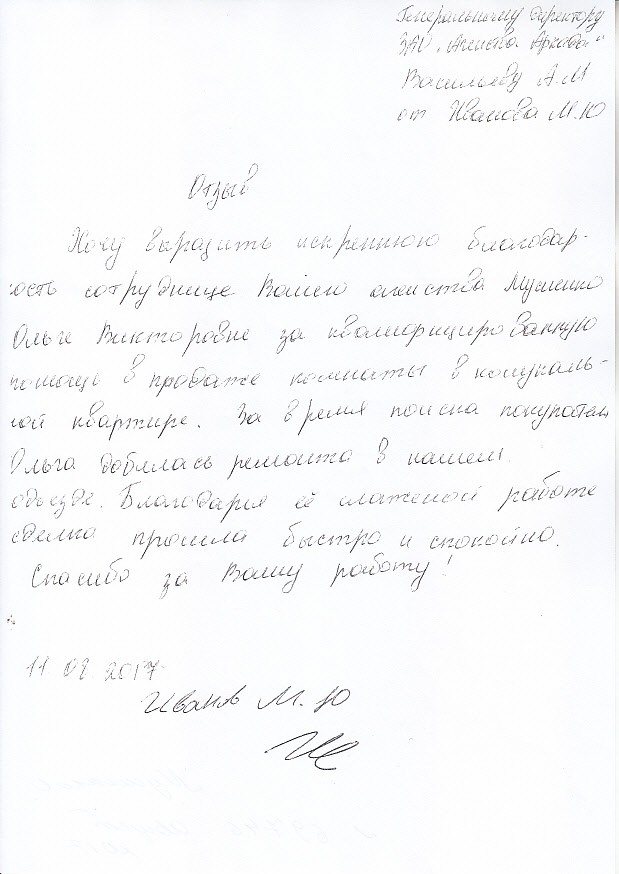 Генеральному директору
ЗАО "Агенство Аркада"
Васильеву А.М
от Иванова М.Ю
Отзыв
Хочу выразить искреннюю благодар-
ость сотруднице Вашего агенства Мусиенко
Ольге Викторовне за квалифицированную
помощь в продаже комнаты в комуналь-
ной квартире. За время поиска покупателя
Ольга добилась ремонта в нашем
одъезде. Благодаря её слаженой работе
сделка прошла быстро и спокойно.
Спасибо за Вашу работу!
11.08.2017
Иванов М.Ю